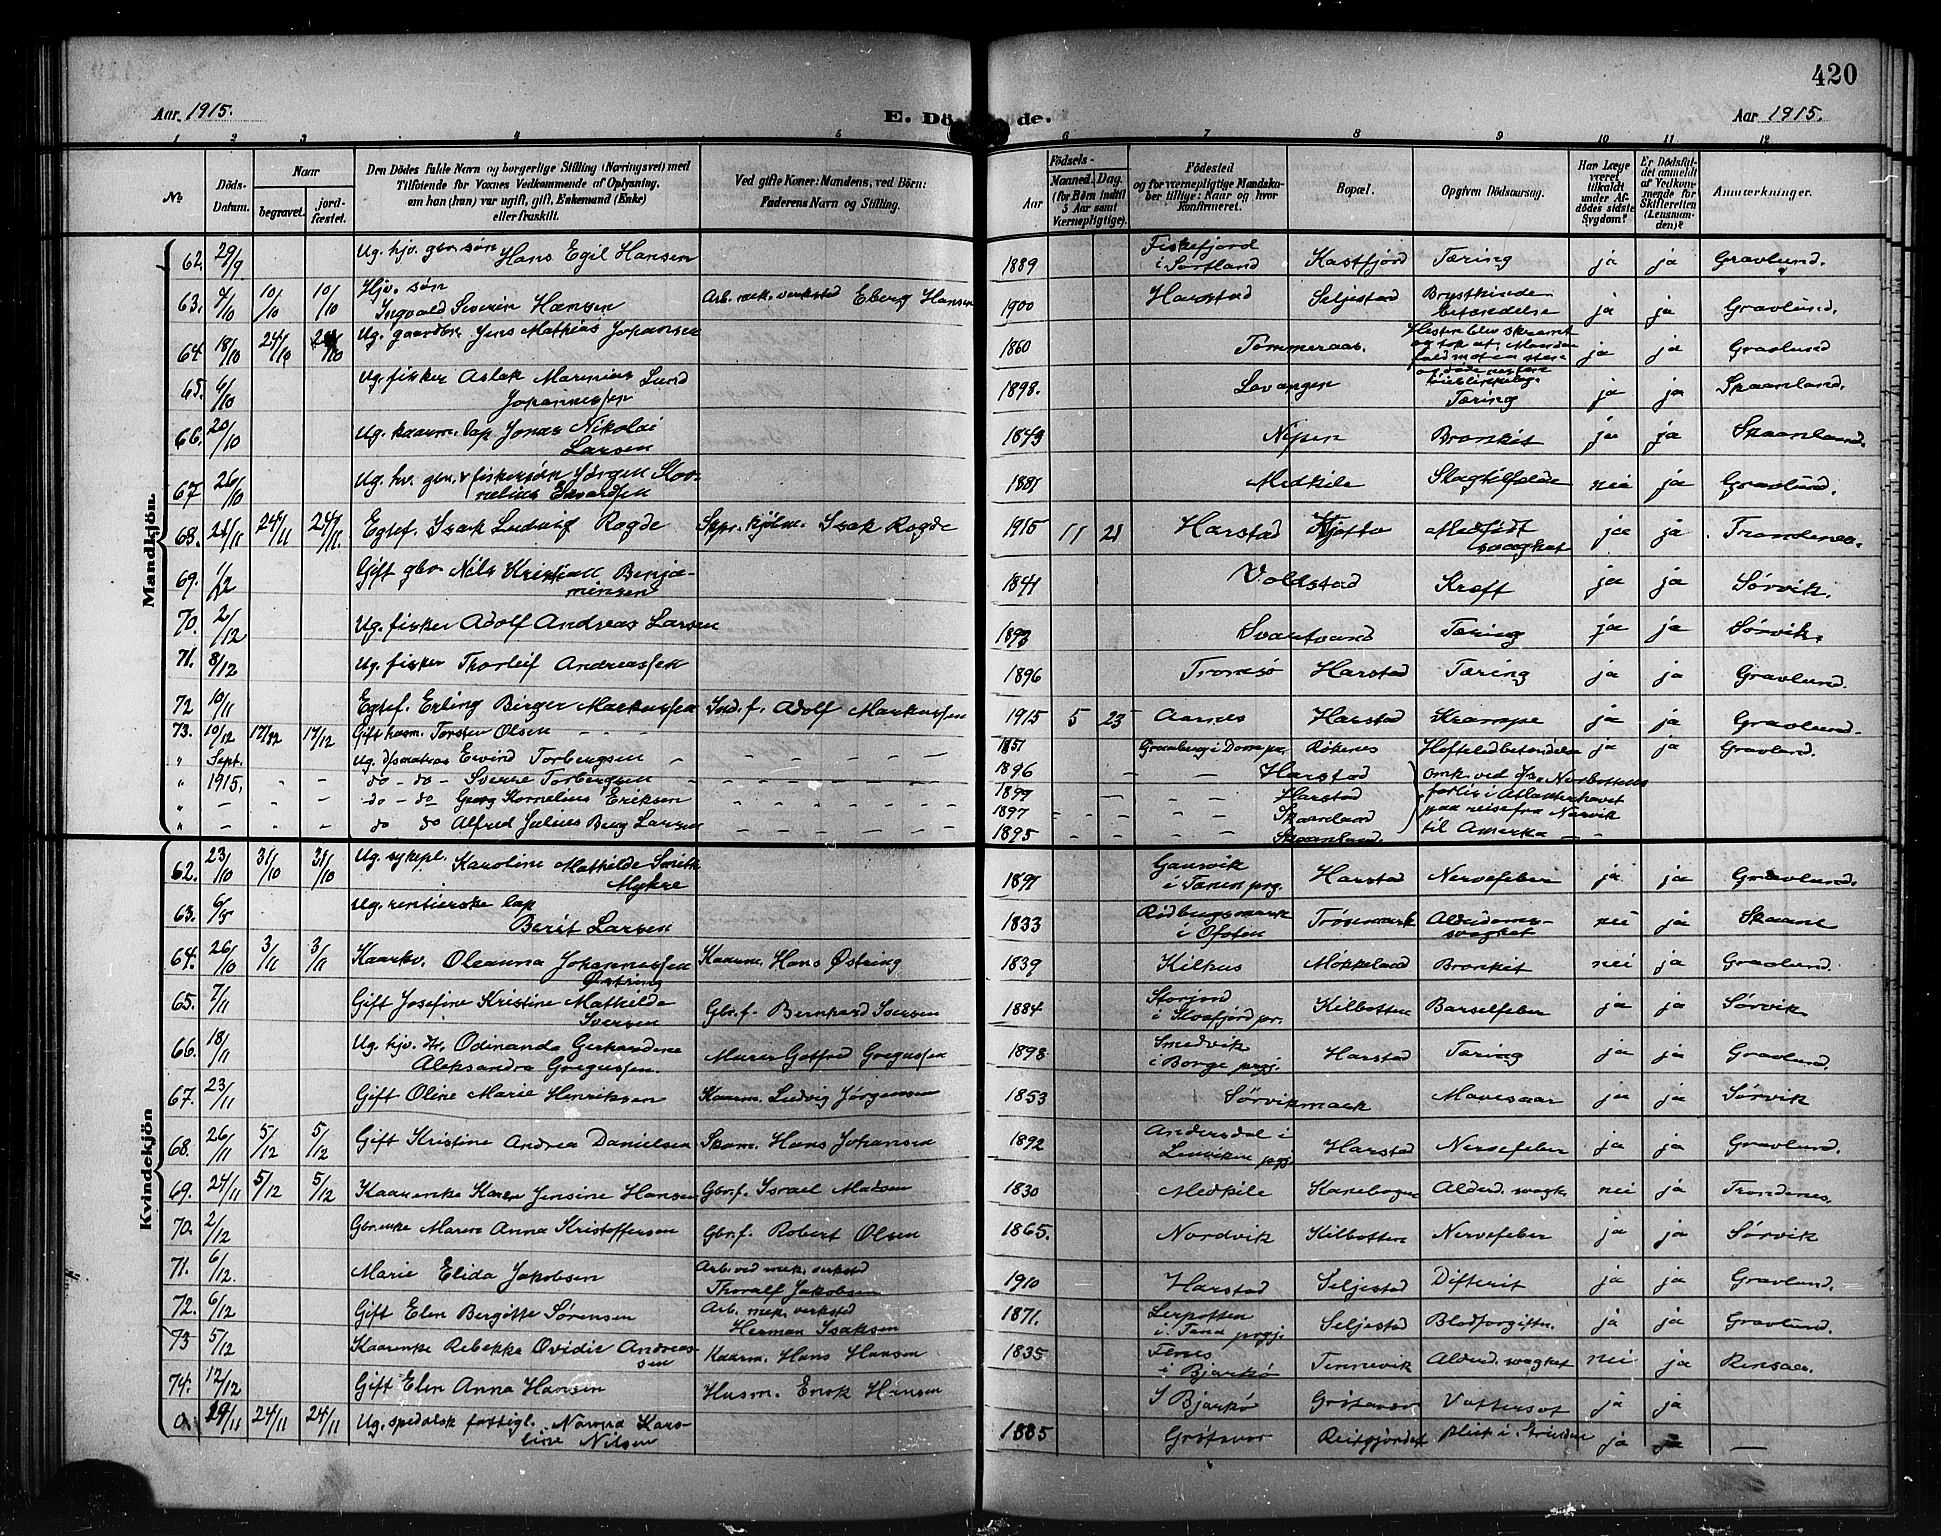 420
Aar 1915.
E. Dö de.
Aar 1915.
1 2 3 4 5 6 7 8 9 10 11 12
No
Döds-Datum.
Naar
begravet.
jord-fæstet.
Den Dödes fulde Navn og borgerlige Stilling (Næringsvei) med
Tilföiende for Voxnes Vedkommende af Oplysning,
om han (hun) var ugift, gift, Enkemand (Enke)
eller fraskilt.
Ved gifte Koner: Mandens, ved Börn:
Faderens Navn og Stilling.
Födsels-
Aar
Maaned. Dag.
(for Börn indtil
5 Aar samt
Værnepligtige).
Födested
og for værnepligtige Mandska-
ber tillige: Naar og hvor
konfirmeret.
Bopæl.
Opgiven Dödsaarsag.
Har Læge
været
tilkaldt
under Af-
dödes sidste
Sygdom?
Er Dödsfal-
det anmeldt
af Vedkom-
mende for
Skifteretten
(Lensman-
den)?
Anmærkninger.
Mandkjön.
62. 29/9 Ug. hjv. gbr. søn Hans Egil Hansen 1889 Fiskefjord i Sortland Kasfjord Tæring ja ja Gravlund.
63. 4/10 10/10 10/10 Hjv. søn Ingvald Severin Hansen Arb. mek. verkstad Eberg Hansen 1900 Harstad Seljestad Brysthinde betændelse ja ja Gravlund.
64. 18/10 24/10 24/10 Ug. gaardbr. Jens Mathias Johansen 1860 Tømmeraas. Hesten blev skræmt og tok ut. Manden faldt mot en sten og døde næsten øieblikkelig. ja ja Gravlund
65. 6/10 Ug. fisker Aslak Marinius Lund Johannessen 1898. Lavangen Tæring ja ja Skaanland.
66. 20/10 Ug. kaarm. lap Jonas Nikolai Larsen 1843 Nipen Bronkit ja ja Skaanland.
67 26/10 Ug. hv. gbr. & fiskersøn Jørgen Kornelius Edvardsen 1881 Medkile Slagtilfælde nei ja Gravlund.
68. 21/11 24/11 24/11. Egtef. Isak Ludvig Rogde Skpr. kjølm. Isak Rogde 1915 11 21 Harstad Kjøtta Medfødt svaghet ja ja Trondenes.
69. 1/12 Gift gbr. Nils Kristian Benjaminsen 1841 Voldstad Kræft ja ja Sørvik.
70. 2/12 Ug. fisker Adolf Andreas Larsen 1893 Svartvand Tæring ja ja Sørvik.
71. 8/12 Ug. fisker Thorleif Andreassen 1896 Tromsø Harstad Tæring ja ja Gravlund.
72 10/11 Egtef. Erling Birger Markussen Ind. f. Adolf Markussen 1915 5 23 Aarnes Harstad Krampe ja ja Gravlund.
73. 10/12 17/12 17/12 Gift husm. Torsten Olsen 1851 Røkenes Hofteledbetændelse ja ja Gravlund.
" Sept. Ug. dsmatros Eivind Torbergsen 1896 Harstad omk. ved d/s Norbottens
" 1915. do - do - Sverre Torbergsen 1899 Harstad forlis i Atlanterhavet
" do - do Georg Kornelius Eriksen 1897 Skaanland paa reise fra Narvik
" do do Alfred Julius Berg Larsen 1895 Skaanland. til Amerika
Kvindekjön.
62. 23/10 31/10 31/10 Ug. sykepl. Karoline Mathilde Smith Myhre 1891 Gausvik i Tranen prg. Harstad Nervefeber ja ja Gravlund.
63. 6/5 Ug. rentierske lap Berit Larsen 1833 Rødbergsmark i Ofoten Trøsemark Alderdomssvaghet nei ja Skaane
64. 26/10 3/11 3/11 Kaarkv. Oleanna Johannessen Østring Kaarm. Hans Østring 1839 Kilhus Møkkeland Bronkit nei ja Gravlund.
65. 7/11 Gift Josefine Kristine Mathilde Iversen Gbr. f. Bernhard Iversen 1884 Storjord i Lødingen pr. Kilbotten Barselfeber ja ja Sørvik
66. 18/11 Ug. hjv. dtr. Odinanda Gerhardine Aleksandra Gregussen. Murer Gotfred Gregussen 1898 Smedvik i Borge prgj. Harstad Tæring ja ja Gravlund.
67. 23/11 Gift Oline Marie Henriksen Kaarm. Ludvig Jørgensen 1853 Sørvikmark Mavesaar ja ja Sørvik
68. 26/11 5/12 5/12 Gift Kristine Andrea Danielsen Skom. Hans Johansen 1892 Andersdal i Lenviken prgj. Harstad Nervefeber ja ja Gravlund.
69. 24/11 5/12 5/12 Kaarenke Karen Jensine Hansen Gbr. f. Israel Madsen 1830 Medkile Kanebogen Alderd. svagh. nei ja Trondenes.
70. 2/12 Gbr. enke Maren Anna Kristoffersen Gbr. f. Robert Olsen 1865. Nordvik Kilbotten Nervefeber ja ja Sørvik
71. 6/12. Marie Elida Jakobsen Arb. ved mek. verkstad Thoralf Jakobsen 1910 Harstad Seljestad Difterit ja ja Gravlund.
72. 6/12 Gift Elen Bergitte Sørensen Arb. mek. verkstad Herman Isaksen 1871. Lerpotten i Tana prgj. Seljestad Blodforgiftn. ja ja Gravlund.
73 5/12 Kaarenke Rebekka Ovidie Andreassen Kaarm. Hans Hansen 1835 Fenes i Bjarkø Tennevik Alderd. svaghet nei ja Rensaa.
74. 12/12 Gift Elen Anna Hansen Husm. Enok Hansen I Bjarkø Grøtavær Vattersot ja ja
0. 19/11 24/11 24/11 Ug. spedalsk fattigl. Nanna Karoline Nilsen 1885 Grøtavær Reitgjærdet ja ja —